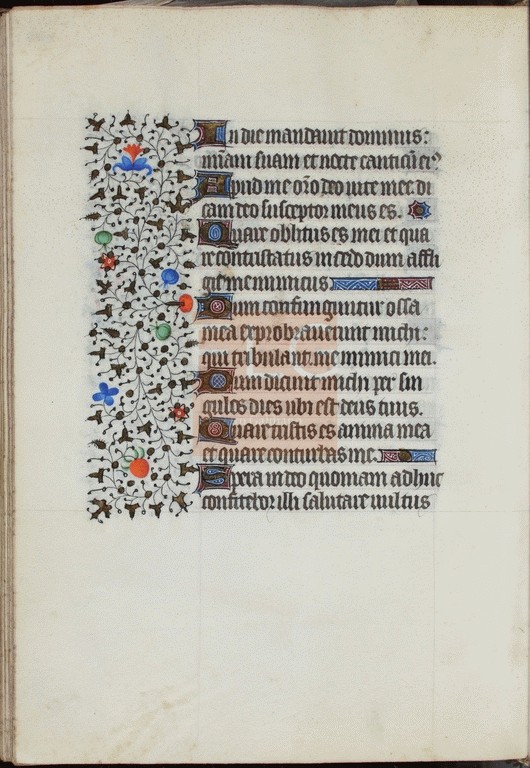 In die mandavit dominus:
miam suam et nocte canticū eiꝰ
Apud me orō deo vite mee: di
cam deo susceptor meus es.
Quare oblitus es mei et qua
re contristatus incedo dum affli
git me inimicus
Dum confringuntur ossa
mea exprobraverunt michi:
qui tribulant me inimici mei.
Dum dicunt michi per sin
gulos dies ubi est deus tuus.
Quare tristis es anima mea
et quare conturbas me.
Spera in deo quoniam adhuc
confitebor illi salutare vultus